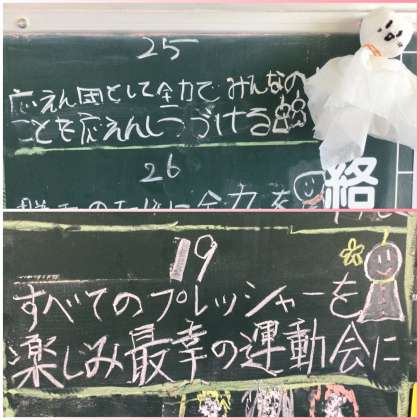 25
応えん団として全力で、みんなの
ことを応えんしつづける
26
のために全力を
絡
19
すべてのプレッシャーを
楽しみ最幸の運動会に